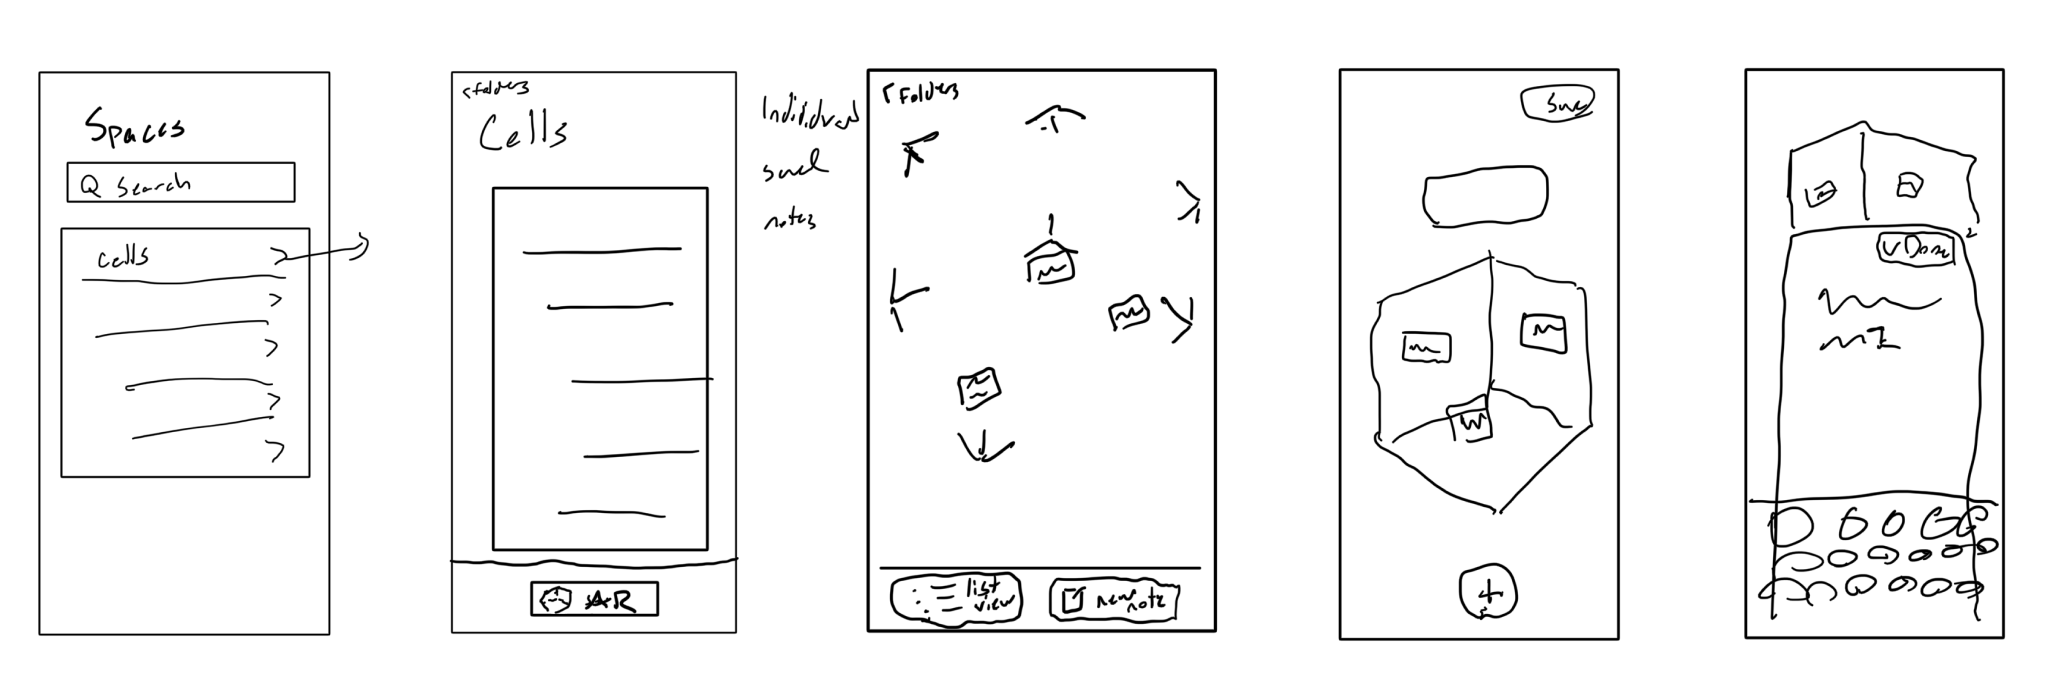 Spaces
Search
cells
<folders
Cells
AR
Individual
saved
notes
<Folders
list
view
new
note
Save
v Done